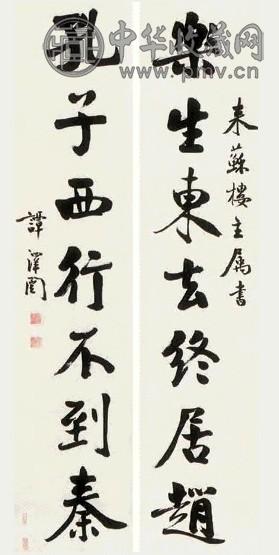 中华收藏网
www.pmv.cn
来蘇樓主属書
樂生東去終居趙
孔子西行不到秦
譚澤闓